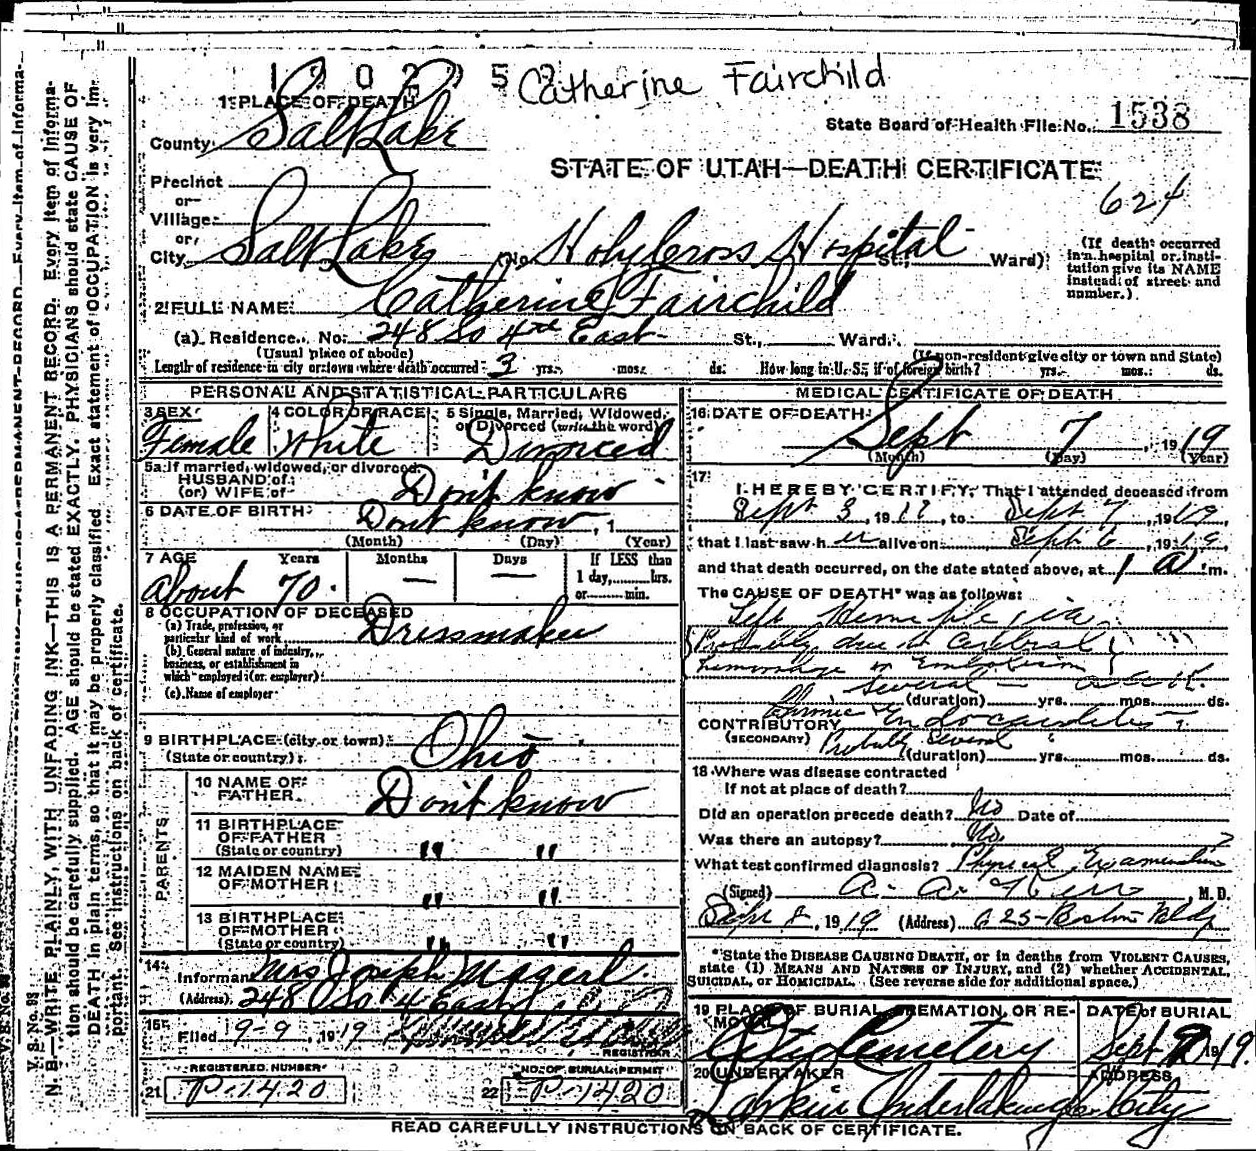 1902352
Catherine Fairchild
1 PLACE OF DEATH
State Board of Health File No. 1538
County Salt Lake
STATE OF UTAH—DEATH CERTIFICATE
624
Precinct
or
Village
or
City Salt Lake (No. Holy Cross Hospital St., Ward)
(If death occurred in a hospital or institution give its NAME instead of street and number.)
2 FULL NAME Catherine Fairchild
(a) Residence. No. 248 So 4th East St., Ward.
(Usual place of abode) (If non-resident give city or town and State)
Length of residence in city or town where death occurred 3 yrs. mos. ds. How long in U. S., if of foreign birth? yrs. mos. ds.
PERSONAL AND STATISTICAL PARTICULARS
3 SEX 4 COLOR OR RACE 5 Single, Married, Widowed, or Divorced (write the word)
Female White Divorced
5a If married, widowed, or divorced
HUSBAND of
(or) WIFE of Don't know
6 DATE OF BIRTH Dont know, 1
(Month) (Day) (Year)
7 AGE Years Months Days If LESS than
1 day, hrs.
or min.
about 70. — —
8 OCCUPATION OF DECEASED
(a) Trade, profession, or particular kind of work Dressmaker
(b) General nature of industry, business, or establishment in which employed (or employer)
(c) Name of employer
9 BIRTHPLACE (city or town)
(State or country) Ohio
PARENTS
10 NAME OF FATHER Don't know
11 BIRTHPLACE OF FATHER (State or country) " "
12 MAIDEN NAME OF MOTHER " "
13 BIRTHPLACE OF MOTHER (State or country) " "
14 Informant Mrs Joseph Magerl
(Address) 248 So 4 East
15 Filed 9-9, 1919
REGISTRAR
REGISTERED NUMBER NO. OF BURIAL PERMIT
21 P-1420 22 P-1420
MEDICAL CERTIFICATE OF DEATH
16 DATE OF DEATH
Sept 7, 1919
(Month) (Day) (Year)
17 I HEREBY CERTIFY, That I attended deceased from
Sept 3, 19, to Sept 7, 1919
that I last saw her alive on Sept 6, 1919
and that death occurred, on the date stated above, at 1 a m.
The CAUSE OF DEATH* was as follows:
Left Hemiplegia
Probably due to Cerebral
hemorrhage or Embolism
several
(duration) yrs. mos. ds.
CONTRIBUTORY Chronic Endocarditis
(SECONDARY) Probably several
(duration) yrs. mos. ds.
18 Where was disease contracted
If not at place of death?
Did an operation precede death? No Date of
Was there an autopsy? No
What test confirmed diagnosis? Physical Examination
(Signed) A. A. Kerr, M. D.
Sept 8, 1919 (Address) 625 Boston Bldg
*State the DISEASE CAUSING DEATH, or in deaths from VIOLENT CAUSES,
state (1) MEANS AND NATURE OF INJURY, and (2) whether ACCIDENTAL,
SUICIDAL, or HOMICIDAL. (See reverse side for additional space.)
19 PLACE OF BURIAL, CREMATION, OR REMOVAL DATE of BURIAL
City Cemetery Sept 9 1919
20 UNDERTAKER ADDRESS
Larkin Undertaking Co. City
READ CAREFULLY INSTRUCTIONS ON BACK OF CERTIFICATE.
V. S. No. 98
N. B.—WRITE PLAINLY, WITH UNFADING INK—THIS IS A PERMANENT RECORD. Every item of information should be carefully supplied. AGE should be stated EXACTLY. PHYSICIANS should state CAUSE OF DEATH in plain terms, so that it may be properly classified. Exact statement of OCCUPATION is very important. See instructions on back of certificate.